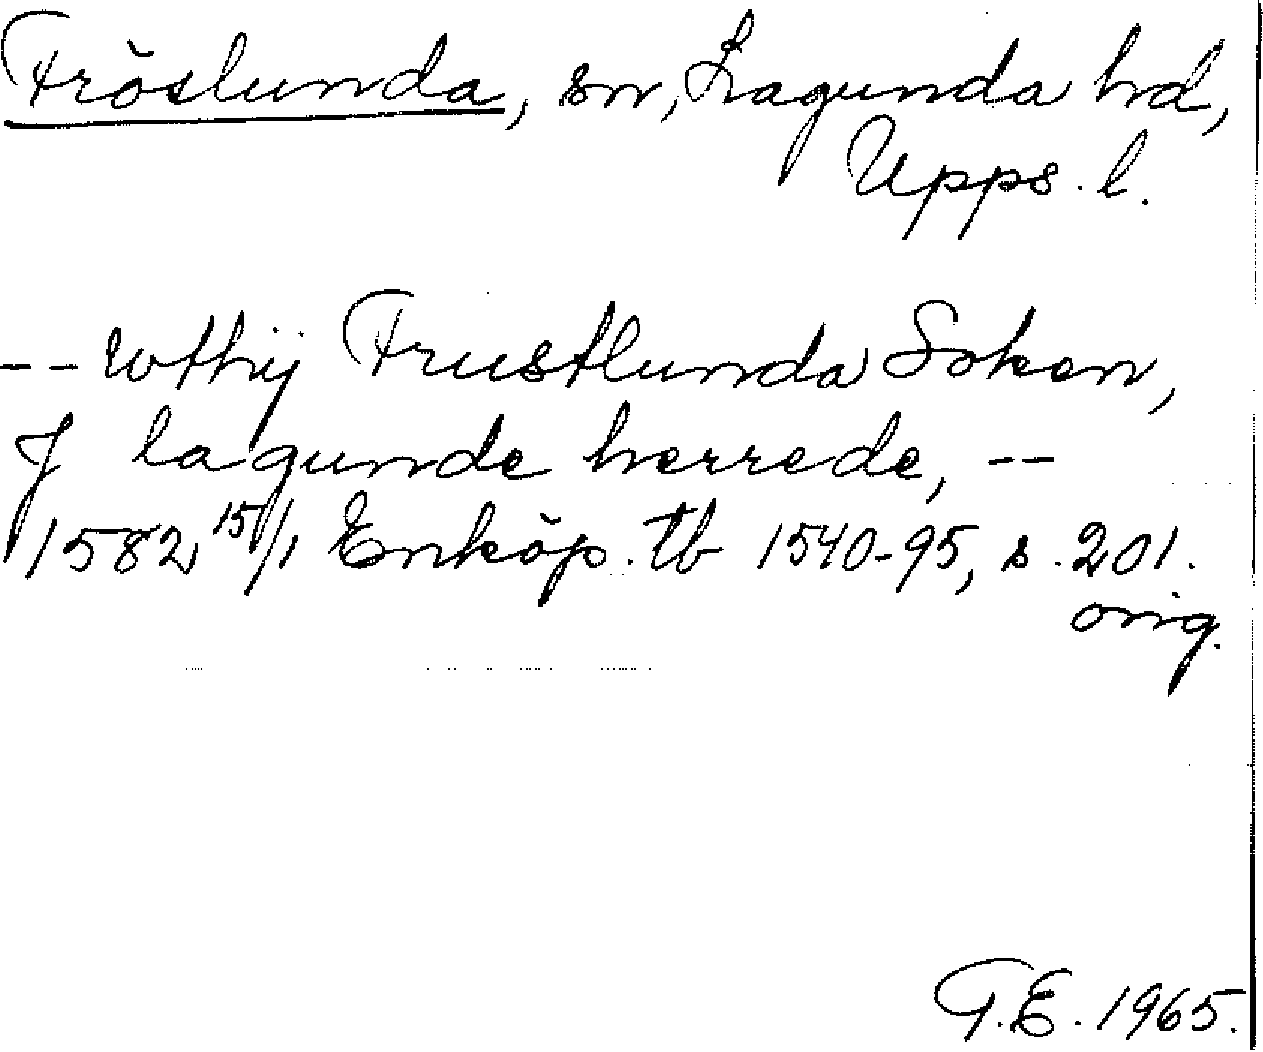 Fröslunda, sn, Lagunda hd,
Upps. l.
-- wthij Frustlunda Soken,
J lagunde herrede, --
1582 15/1 Enköp. tb 1540-95, s. 201.
orig.
G.E. 1965.